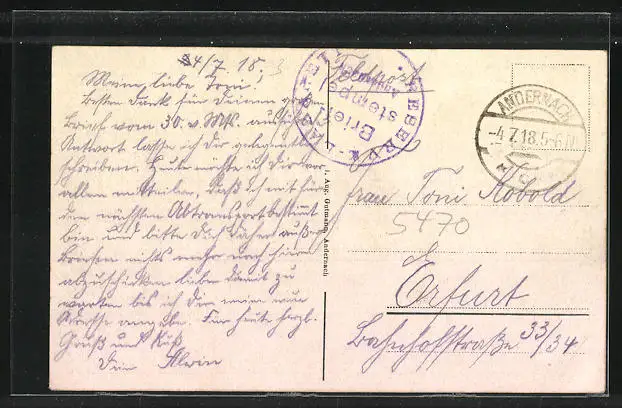 4/7. 18
Meine liebe Toni!
Besten Dank für Deinen
Brief vom 30. v. Mts.
Antwort lasse ich Dir gelegentlich
schreiben. Heute möchte ich Dir vor
allem mitteilen, daß ich mit für
den nächsten Abtransport bestimmt
bin und bitte Dich daher außer
Briefen nichts mehr nach hier
abzuschicken lieber damit zu
warten bis ich Dir meine neue
Adresse angebe. Für heute herzl.
Gruß und Kuß
Dein Alwin
J. Aug. Gutmann, Andernach
Feldpost
RESERVE-LAZ
Briefstempel
ANDERNACH
-4.7.18.5-6.N
Frau Toni Kobold
5470
Erfurt
Bahnhofstraße 33/34